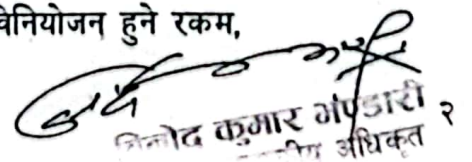 विनियोजन हुने रकम,
विनोद कुमार भण्डारी २
अधिकृत